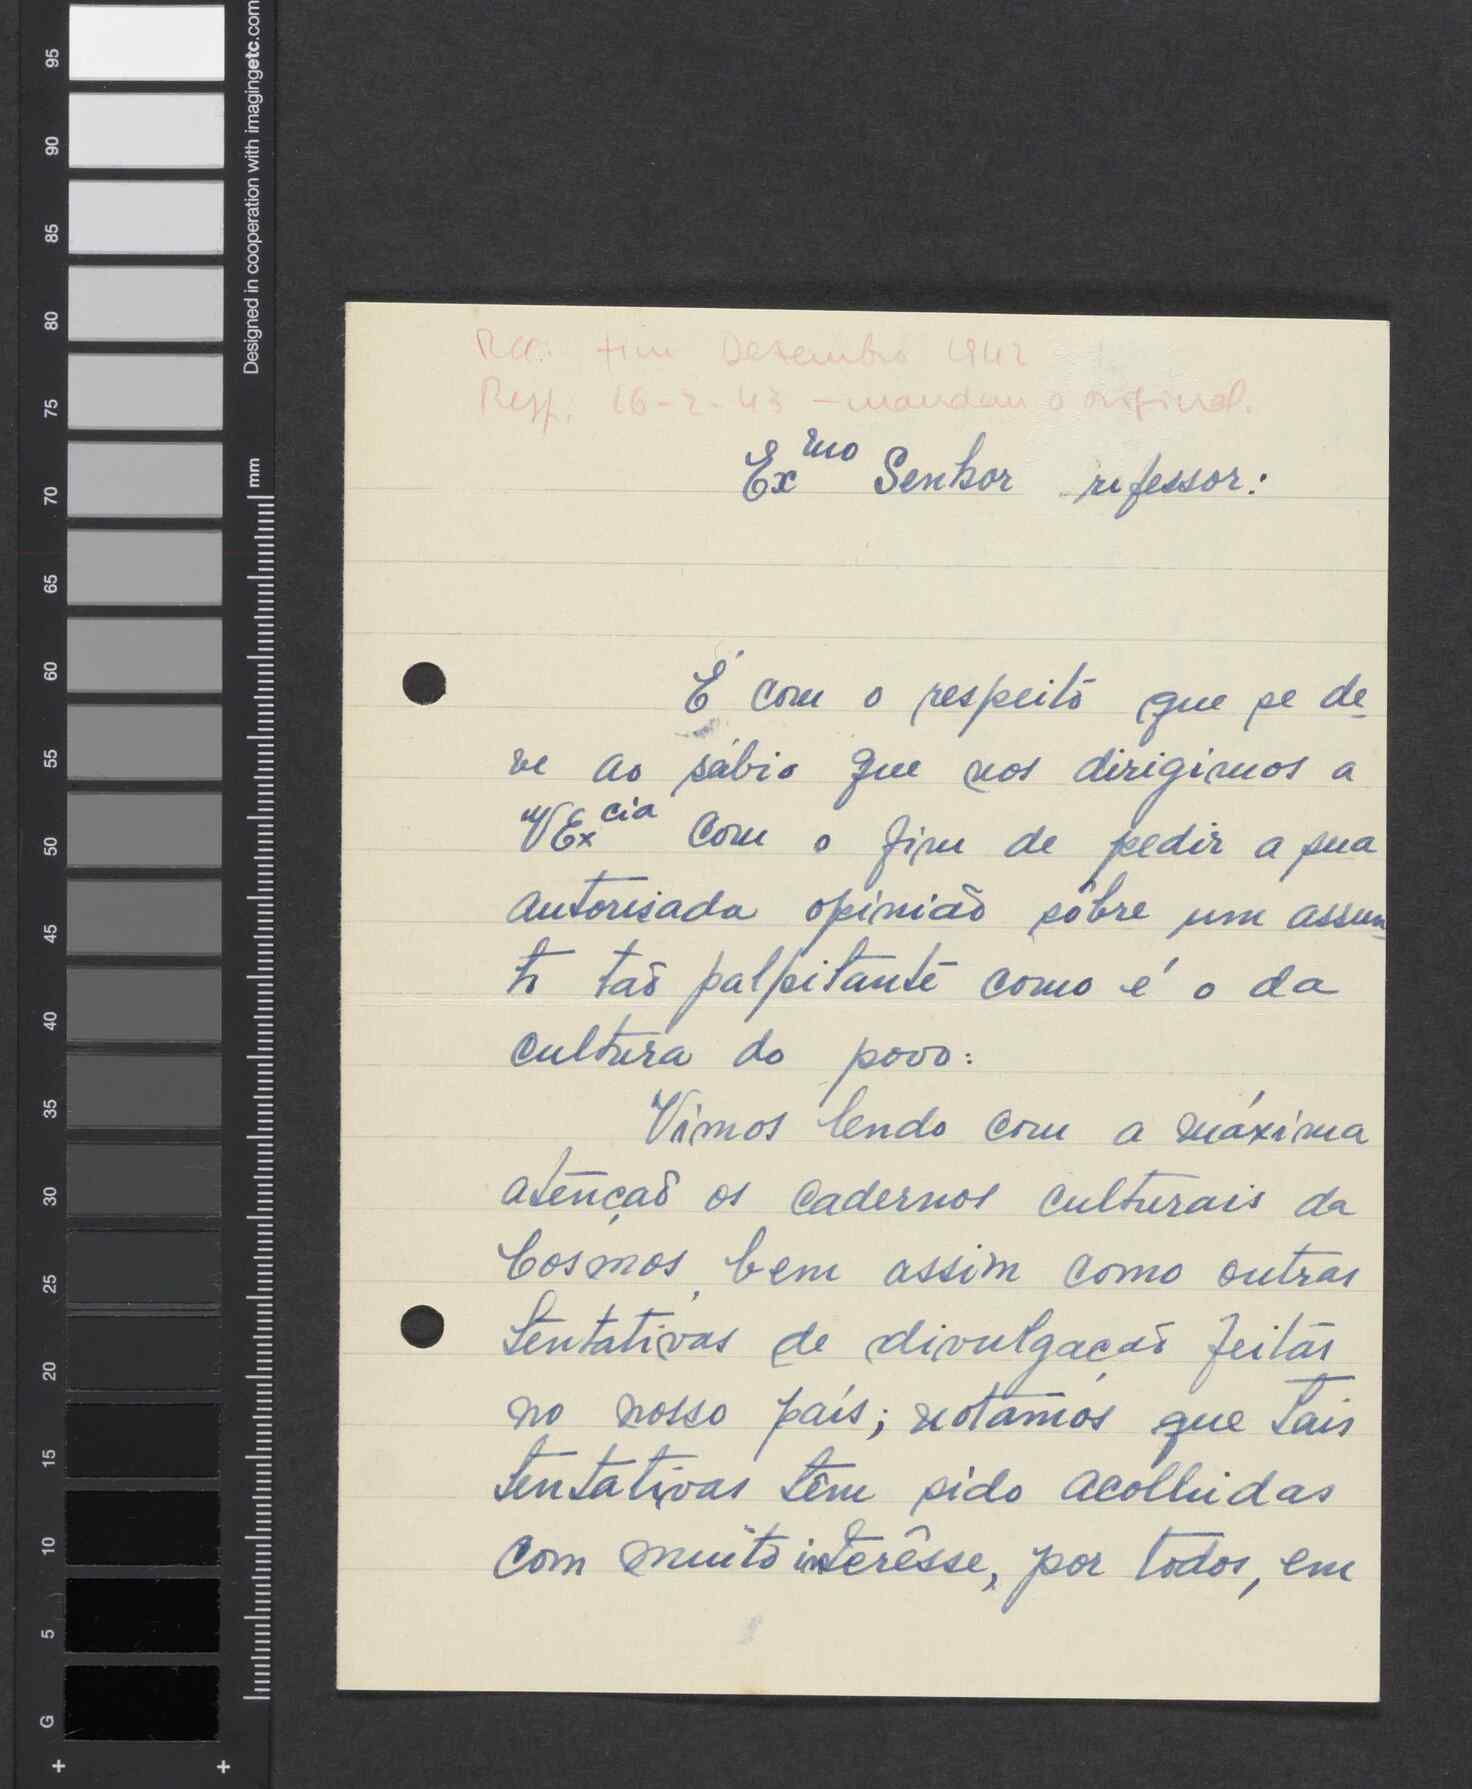 Rec. fim Dezembro 1942
Resp. 16-2-43 – mandou o original.
Ex^mo Senhor rofessor:
É com o respeito que se de-
ve ao sábio que nos dirigimos a
VEx^cia com o fim de pedir a sua
autorisada opinião sôbre um assun-
to tão palpitante como é o da
cultura do povo:
Vimos lendo com a máxima
atenção os cadernos culturais da
Cosmos, bem assim como outras
tentativas de divulgação feitas
no nosso país; notámos que tais
tentativas têm sido acolhidas
com muito interêsse, por todos, em
Designed in cooperation with imagingetc.com
mm
95
90
85
80
75
70
65
60
55
50
45
40
35
30
25
20
15
10
5
G
+ +